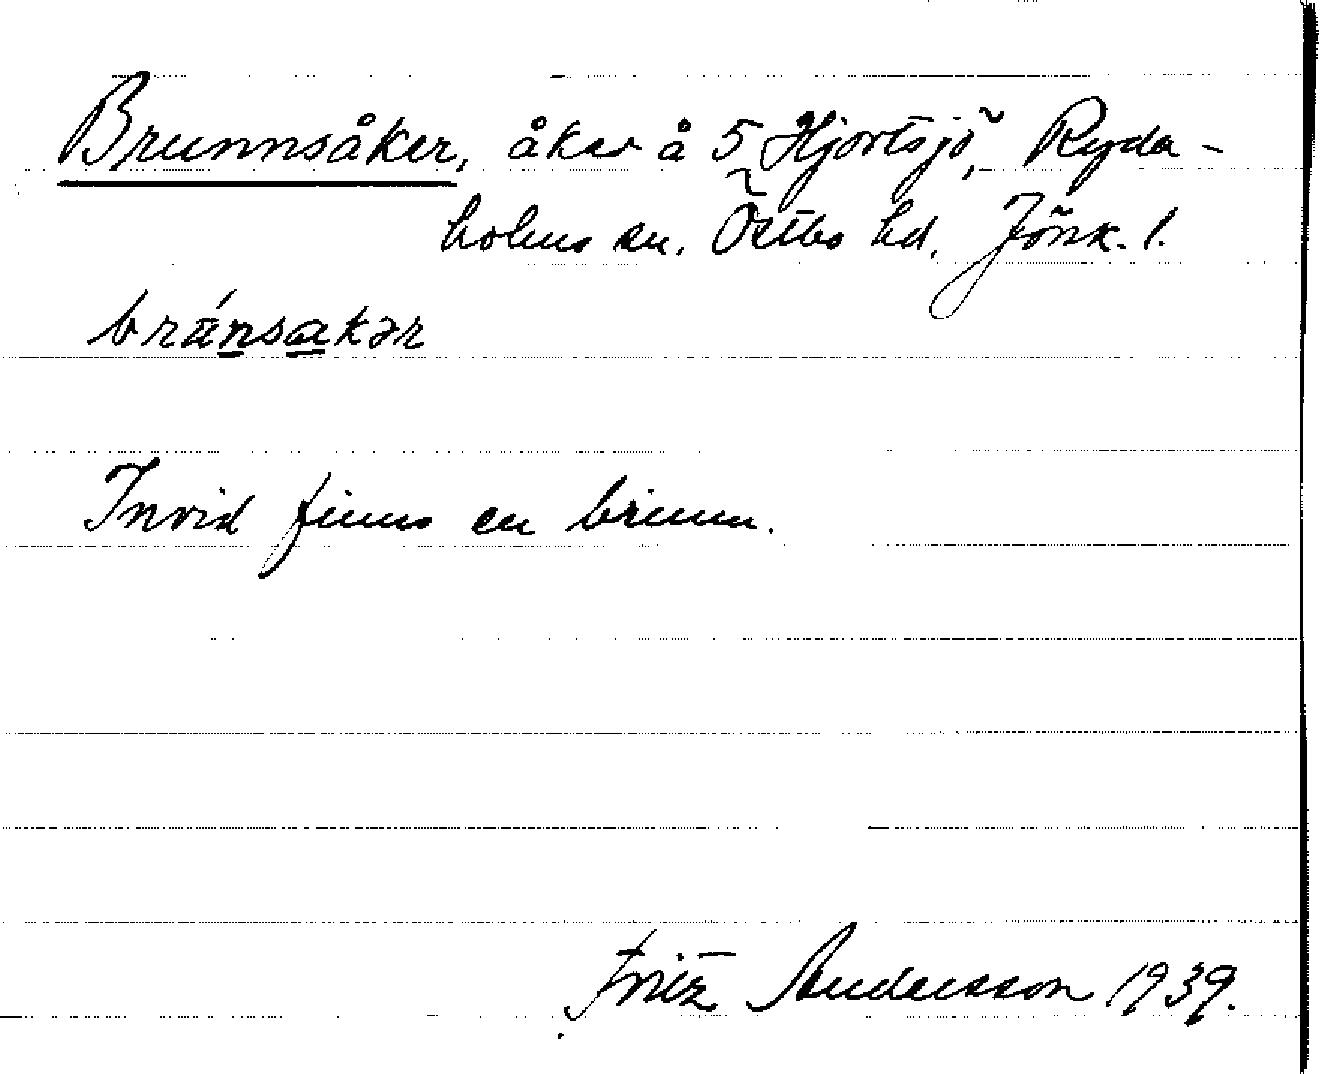 Brunnsåker, åker å 5 Hjortsjö, Ryda-
holms sn. Östbo hd, Jönk. l.
brúnsakər
Invid finns en brunn.
Fritz Andersson 1939.